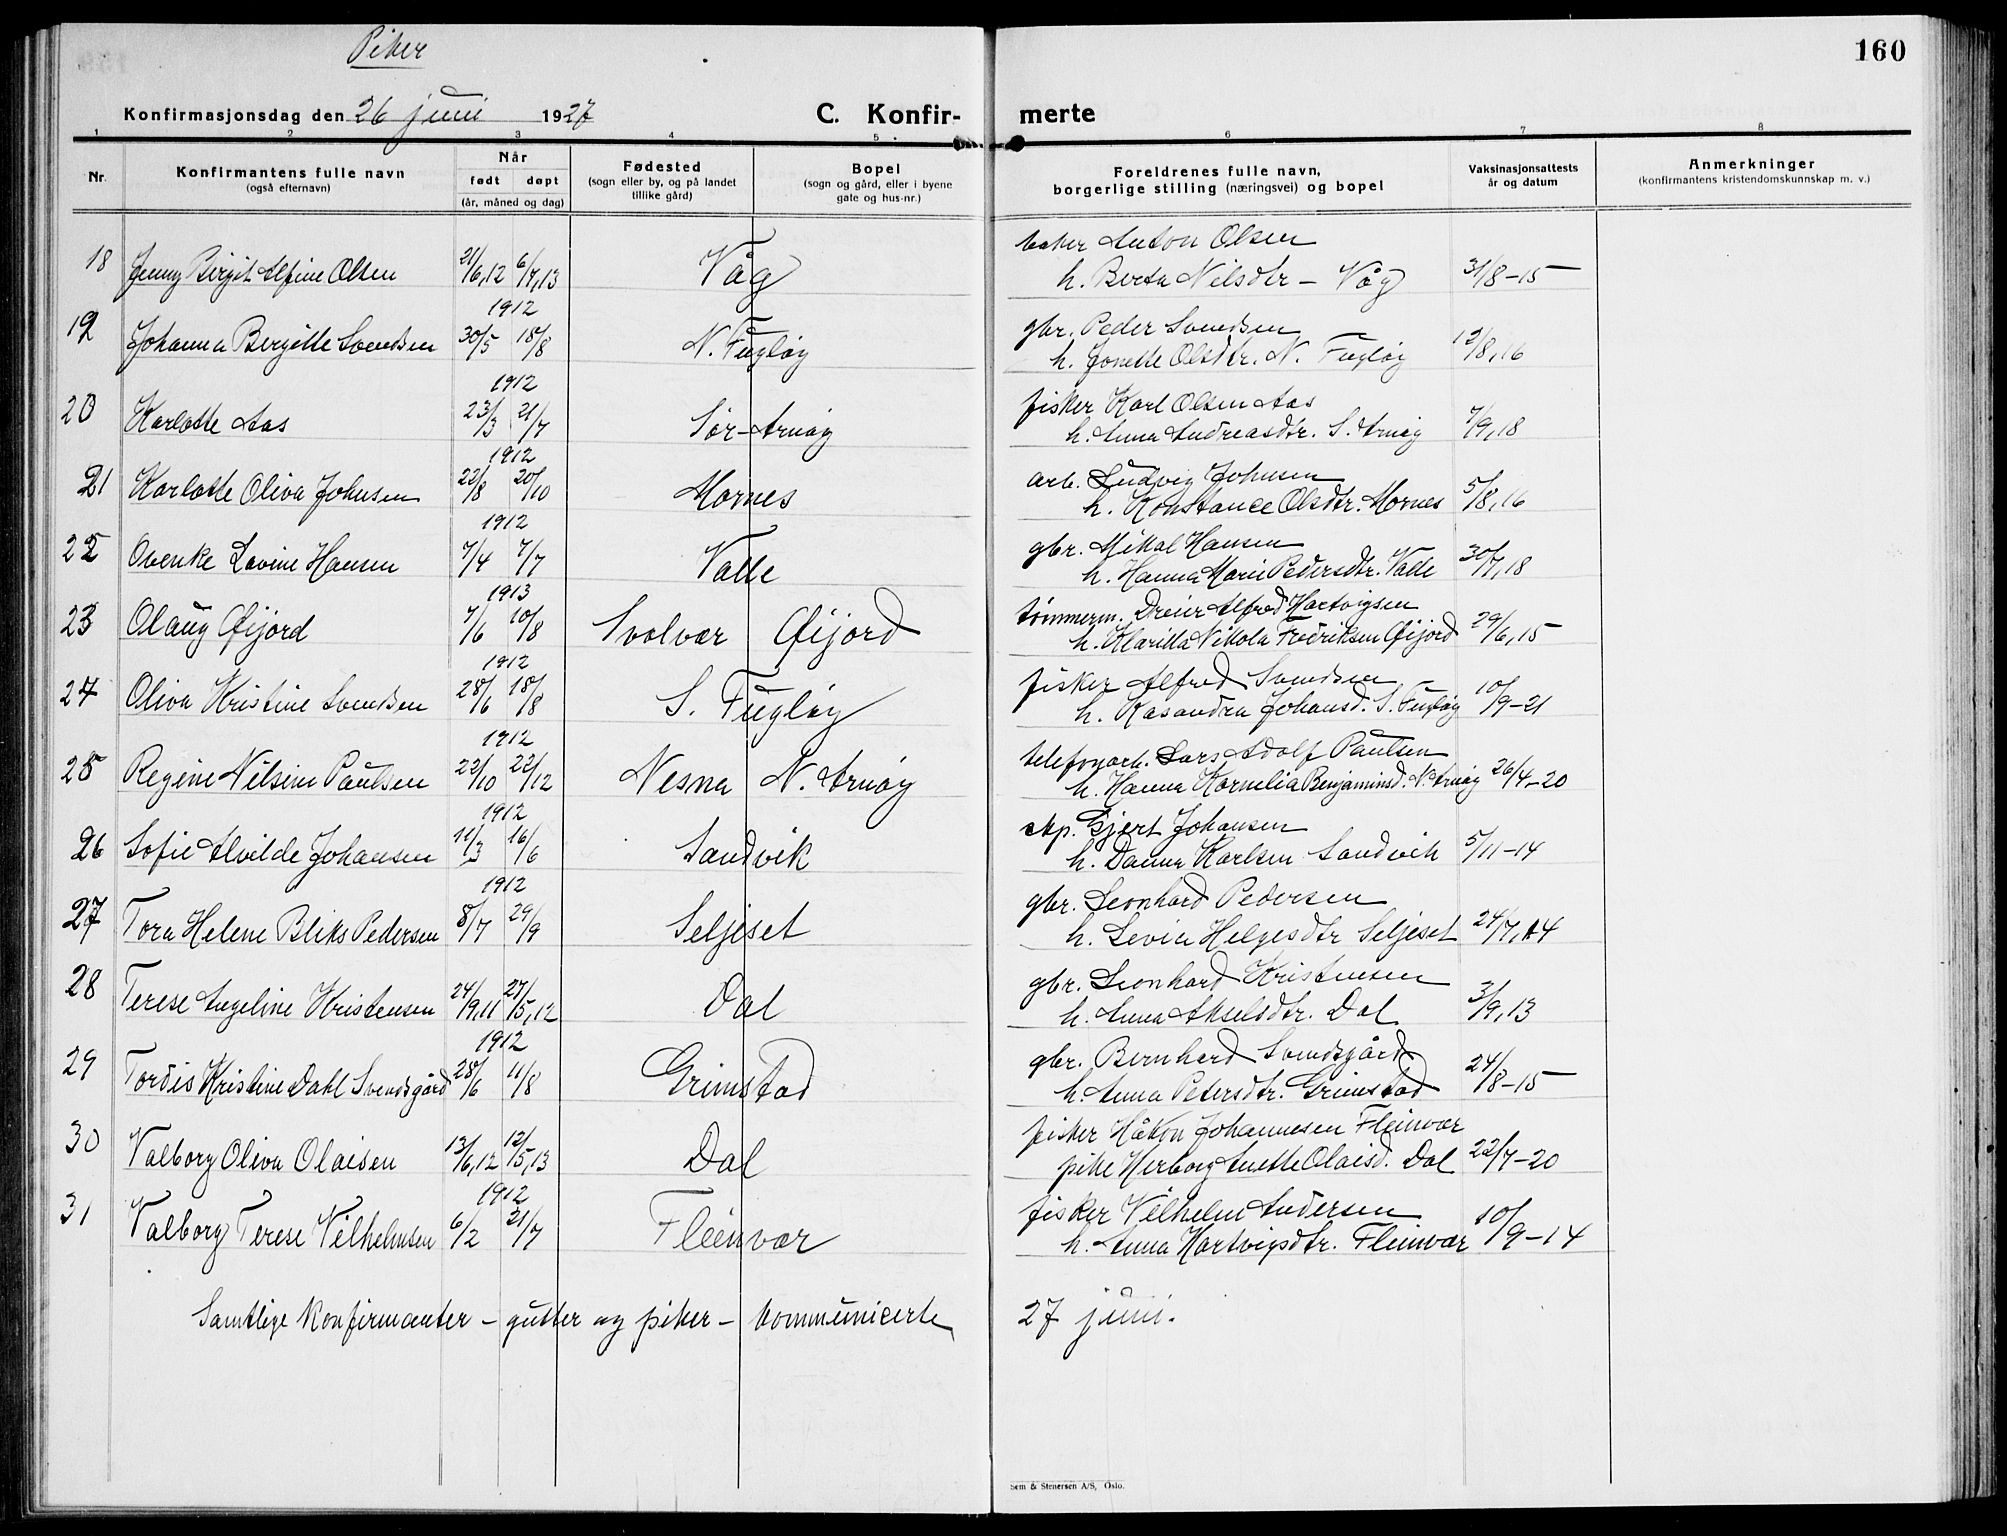 Piker
160
Konfirmasjonsdag den 26 juni 1927
C. Konfir-
merte
1 2 3 4 5 6 7 8
Nr.
Konfirmantens fulle navn
(også efternavn)
Når
født døpt
(år, måned og dag)
Fødested
(sogn eller by, og på landet
tillike gård)
Bopel
(sogn og gård, eller i byene
gate og hus-nr.)
Foreldrenes fulle navn,
borgerlige stilling (næringsvei) og bopel
Vaksinasjonsattests
år og datum
Anmerkninger
(konfirmantens kristendomskunnskap m. v.)
baker Anton Olsen
18 Jenny Birgit Alfine Olsen 21/6,12 6/7,13 Våg h. Berta Nilsdtr - Våg 31/8-15
1912 gbr. Peder Svendsen
19 Johanna Bergitte Svendsen 30/5 18/8 N. Fugløy h. Jonette Olsdtr. N. Fugløy 12/8,16
1912 fisker Karl Olsen Aas
20 Karlotte Aas 23/3 21/7 Sør-Arnøy h. Anna Andreasdtr. S. Arnøy 7/9,18
1912 arb. Ludvig Johnsen
21 Karlotte Oliva Johnsen 22/8 20/10 Mornes h. Konstance Olsdtr. Mornes 5/8,16
1912 gbr. Mikal Hansen
22 Ovenke Lovine Hansen 7/4 7/7 Valle h. Hanna Marie Pedersdtr. Valle 30/7,18
1913 tømmerm. Dreier Alfred Hartvigsen
23 Olaug Øijord 7/6 10/8 Svolvær Øijord h. Marilla Nikola Fredriksen Øijord 29/6,15
1912 fisker Alfred Svendsen
24 Oliva Kristine Svendsen 28/6 18/8 S. Fugløy h. Kasandra Johansd. S. Fugløy 10/9-21
1912 telefonarb. Lars Adolf Paulsen
25 Regine Nilsine Paulsen 22/10 22/12 Nesna N. Arnøy h. Hanna Kornelia Benjaminsd. N. Arnøy 26/4-20
1912 eksp. Gjert Johansen
26 Sofie Alvilde Johansen 11/3 16/6 Sandvik h. Danna Karlsen Sandvik 5/11-14
1912 gbr. Leonhard Pedersen
27 Tora Helene Bliks Pedersen 8/7 29/9 Seljeset h. Levin Helgesdtr Seljeset 24/7,14
gbr. Leonhard Kristensen
28 Terese Angeline Kristensen 24/9,11 27/5,12 Dal h. Anna Akselsdtr. Dal 3/9,13
1912 gbr. Bernhard Svendsgård
29 Tordis Kristine Dahl Svendsgård 28/6 11/8 Grimstad h. Anna Petersdtr. Grimstad 24/8-15
fisker Håkon Johannesen Fleinvær
30 Valborg Oliva Olaisen 13/6,12 12/5,13 Dal pike Herborg Anette Olaisd. Dal 22/7-20
1912 fisker Vilhelm Andersen
31 Valborg Terese Vilhelmsen 6/2 21/7 Fleinvær h. Anna Hartvigsdtr. Fleinvær 10/9-14
Samtlige konfirmanter - gutter og piker - kommunicerte 27 juni.
Sem & Stenersen A/S, Oslo.